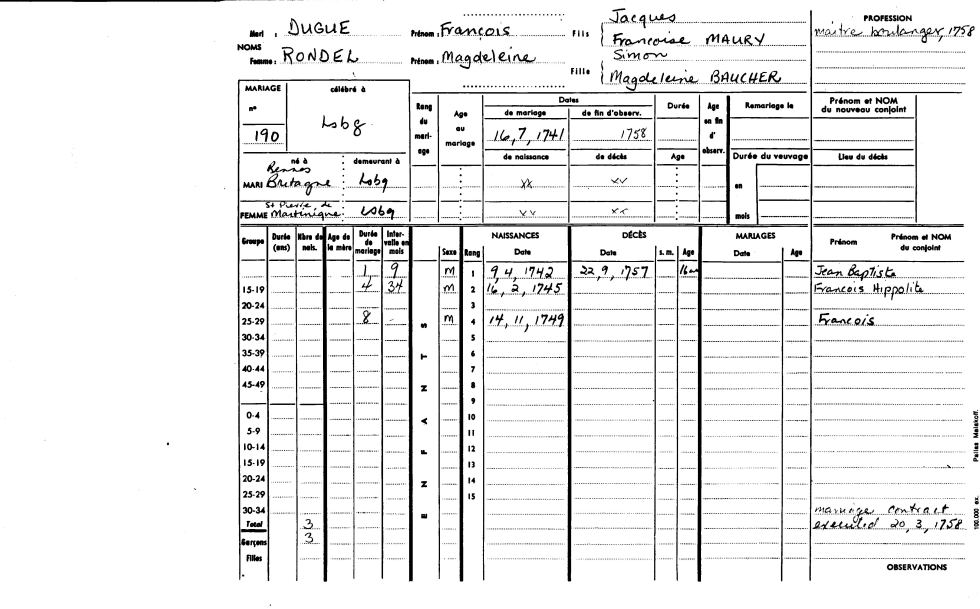 Mari : DUGUE Prénom : François Fils { Jacques Françoise MAURY
NOMS
Femme : RONDEL Prénom : Magdeleine Fille { Simon Magdeleine BAUCHER
PROFESSION
maitre boulanger, 1758
MARIAGE célébré à
n° 190 Lsbg
Rang du mari-age
Age au mariage
Dates
de mariage de fin d'observ.
16, 7, 1741 1758
de naissance de décès
xx xx
xx xx
Durée
Age
Age en fin d' observ.
Remariage le
Durée du veuvage
en
mois
Prénom et NOM du nouveau conjoint
Lieu du décès
né à demeurant à
MARI Rennes Bretagne Lsbg
FEMME St Pierre de Martinique Lsbg
Groupe Durée (ans) Nbre de nais. Age de la mère Durée de mariage Inter-valle en mois
ENFANTS
Sexe Rang NAISSANCES Date DÉCÈS Date s. m. Age MARIAGES Date Age Prénom Prénom et NOM du conjoint
1 9 M 1 9, 4, 1742 22, 9, 1757 16 ans Jean Baptiste
15-19 4 34 M 2 16, 2, 1745 Francois Hippolite
20-24 3
25-29 8 - M 4 14, 11, 1749 Francois
30-34 5
35-39 6
40-44 7
45-49 8
9
0-4 10
5-9 11
10-14 12
15-19 13
20-24 14
25-29 15
30-34 marriage contract
Total 3 executed 20, 3, 1758
Garçons 3
Filles
OBSERVATIONS
100.000 ex. Pallas Malakoff.